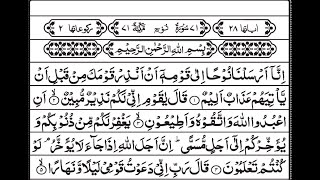 اٰیاتها ۲۸ ۷۱ سُوْرَةُ نُوْحٍ مَكِّیَّةٌ ۷۱ رکوعاتها ۲
بِسْمِ اللّٰهِ الرَّحْمٰنِ الرَّحِیْمِ
اِنَّاۤ اَرْسَلْنَا نُوْحًا اِلٰى قَوْمِهٖۤ اَنْ اَنْذِرْ قَوْمَكَ مِنْ قَبْلِ اَنْ
یَّاْتِیَهُمْ عَذَابٌ اَلِیْمٌ ۝۱ قَالَ یٰقَوْمِ اِنِّیْ لَكُمْ نَذِیْرٌ مُّبِیْنٌ ۝۲ اَنِ
اعْبُدُوا اللّٰهَ وَاتَّقُوْهُ وَاَطِیْعُوْنِ ۝۳ یَغْفِرْ لَكُمْ مِّنْ ذُنُوْبِكُمْ وَ
یُؤَخِّرْكُمْ اِلٰۤى اَجَلٍ مُّسَمًّى ؕ اِنَّ اَجَلَ اللّٰهِ اِذَا جَآءَ لَا یُؤَخَّرُ ۘ لَوْ
كُنْتُمْ تَعْلَمُوْنَ ۝۴ قَالَ رَبِّ اِنِّیْ دَعَوْتُ قَوْمِیْ لَیْلًا وَّنَهَارًا ۝۵